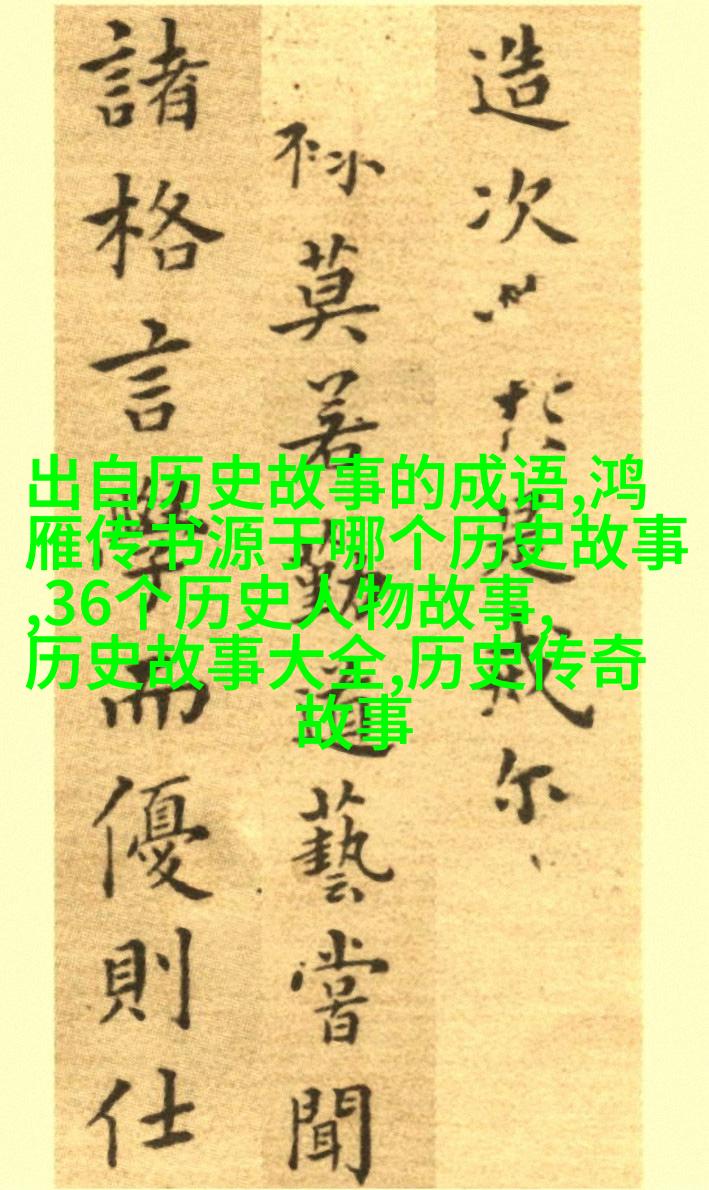 造次於是戒尔
莫若勤道藝嘗聞
諸格言學而優則仕
出自历史故事的成语,鸿
雁传书源于哪个历史故事
,36个历史人物故事,
历史故事大全,历史传奇
故事